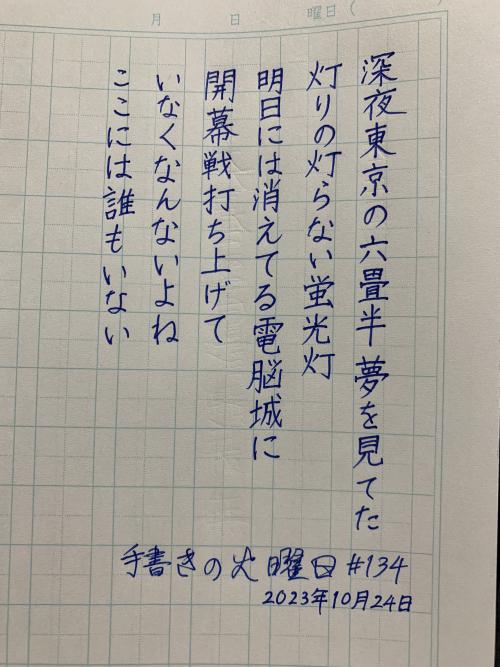 月 日 曜日(  )
深夜東京の六畳半夢を見てた
灯りの灯らない蛍光灯
明日には消えてる電脳城に
開幕戦打ち上げて
いなくなんないよね
ここには誰もいない
手書きの火曜日#134
2023年10月24日